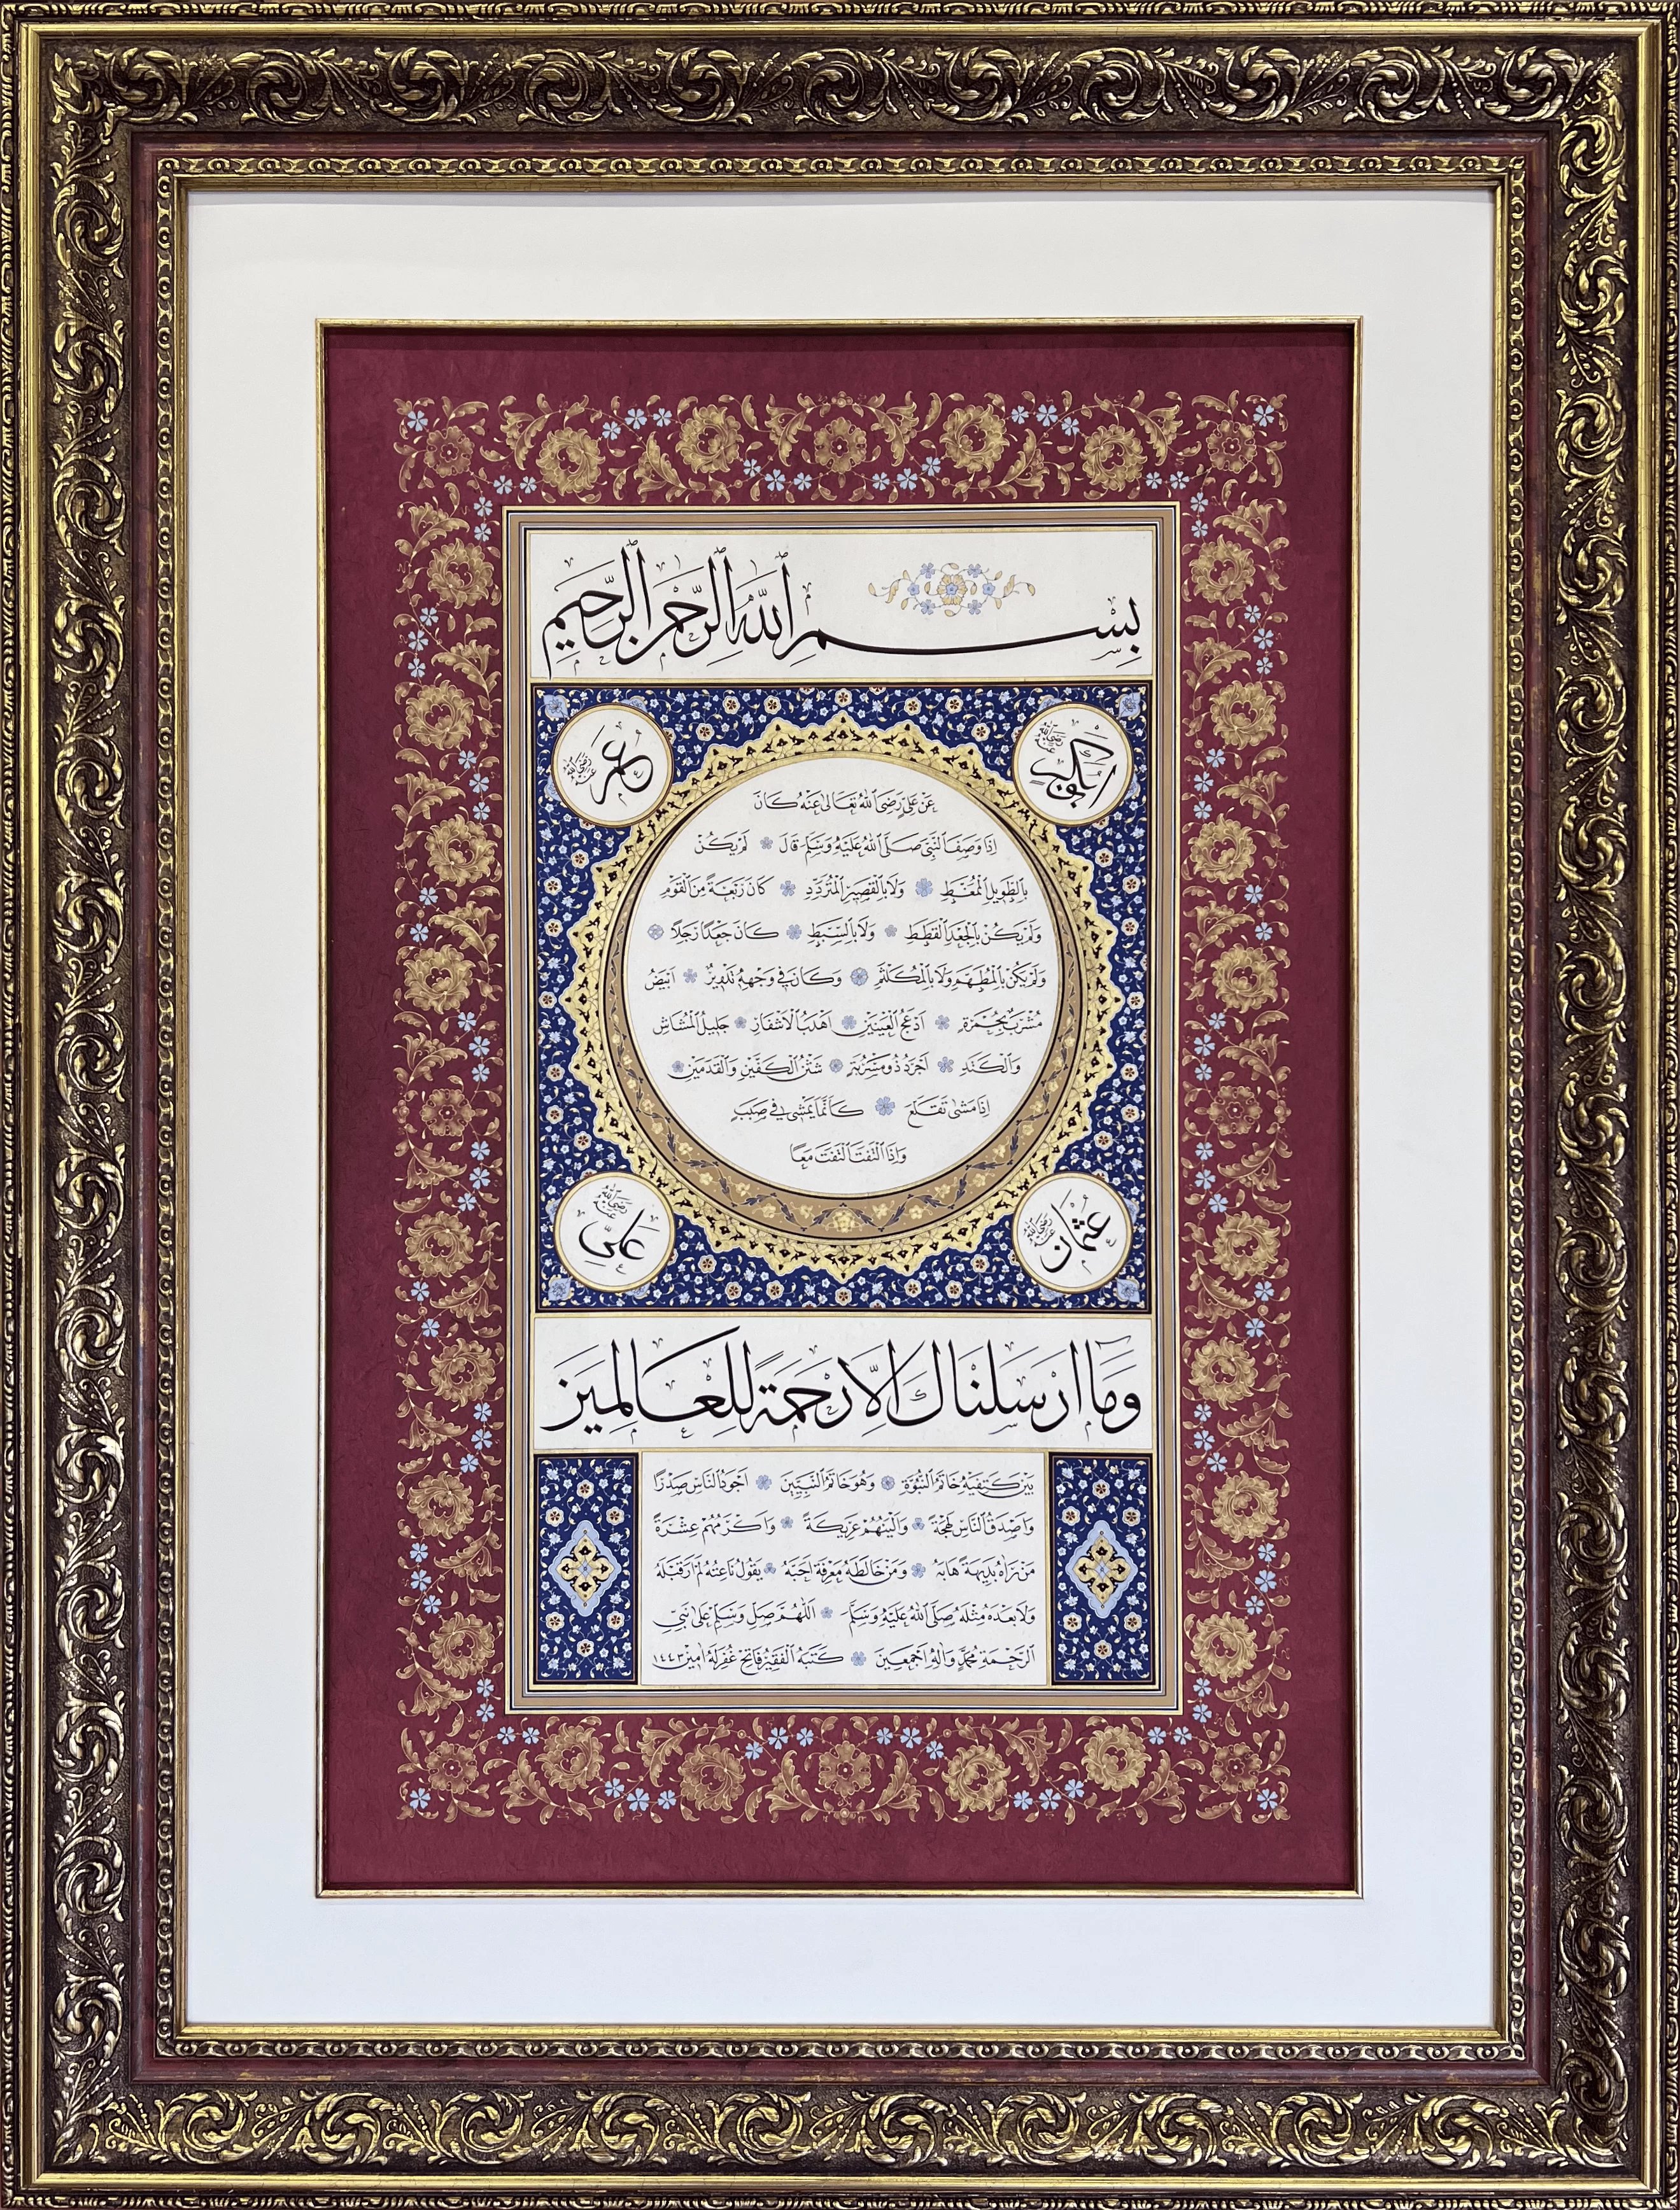 بسم الله الرحمن الرحيم
ابوبكر رضى الله تعالى عنه
عمر رضى الله عنه
عن على رضى الله تعالى عنه كان
اذا وصف النبى صلى الله عليه وسلم قال لم يكن
بالطويل الممغط ولا بالقصير المتردد كان ربعة من القوم
ولم يكن بالجعد القطط ولا بالسبط كان جعدا رجلا
ولم يكن بالمطهم ولا بالمكلثم وكان فى وجهه تدوير ابيض
مشرب بحمرة ادعج العينين اهدب الاشفار جليل المشاش
والكتد اجرد ذو مسربة شثن الكفين والقدمين
اذا مشى تقلع كانما يمشى فى صبب
واذا التفت التفت معا
عثمان رضى الله عنه
على رضى الله عنه
وما ارسلناك الا رحمة للعالمين
بين كتفيه خاتم النبوة وهو خاتم النبيين اجود الناس صدرا
واصدق الناس لهجة والينهم عريكة واكرمهم عشرة
من راه بديهة هابه ومن خالطه معرفة احبه يقول ناعته لم ار قبله
ولا بعده مثله صلى الله عليه وسلم اللهم صل وسلم على نبى
الرحمة محمد واله اجمعين كتبه الفقير فاتح غفر له امين ١٤٤٣